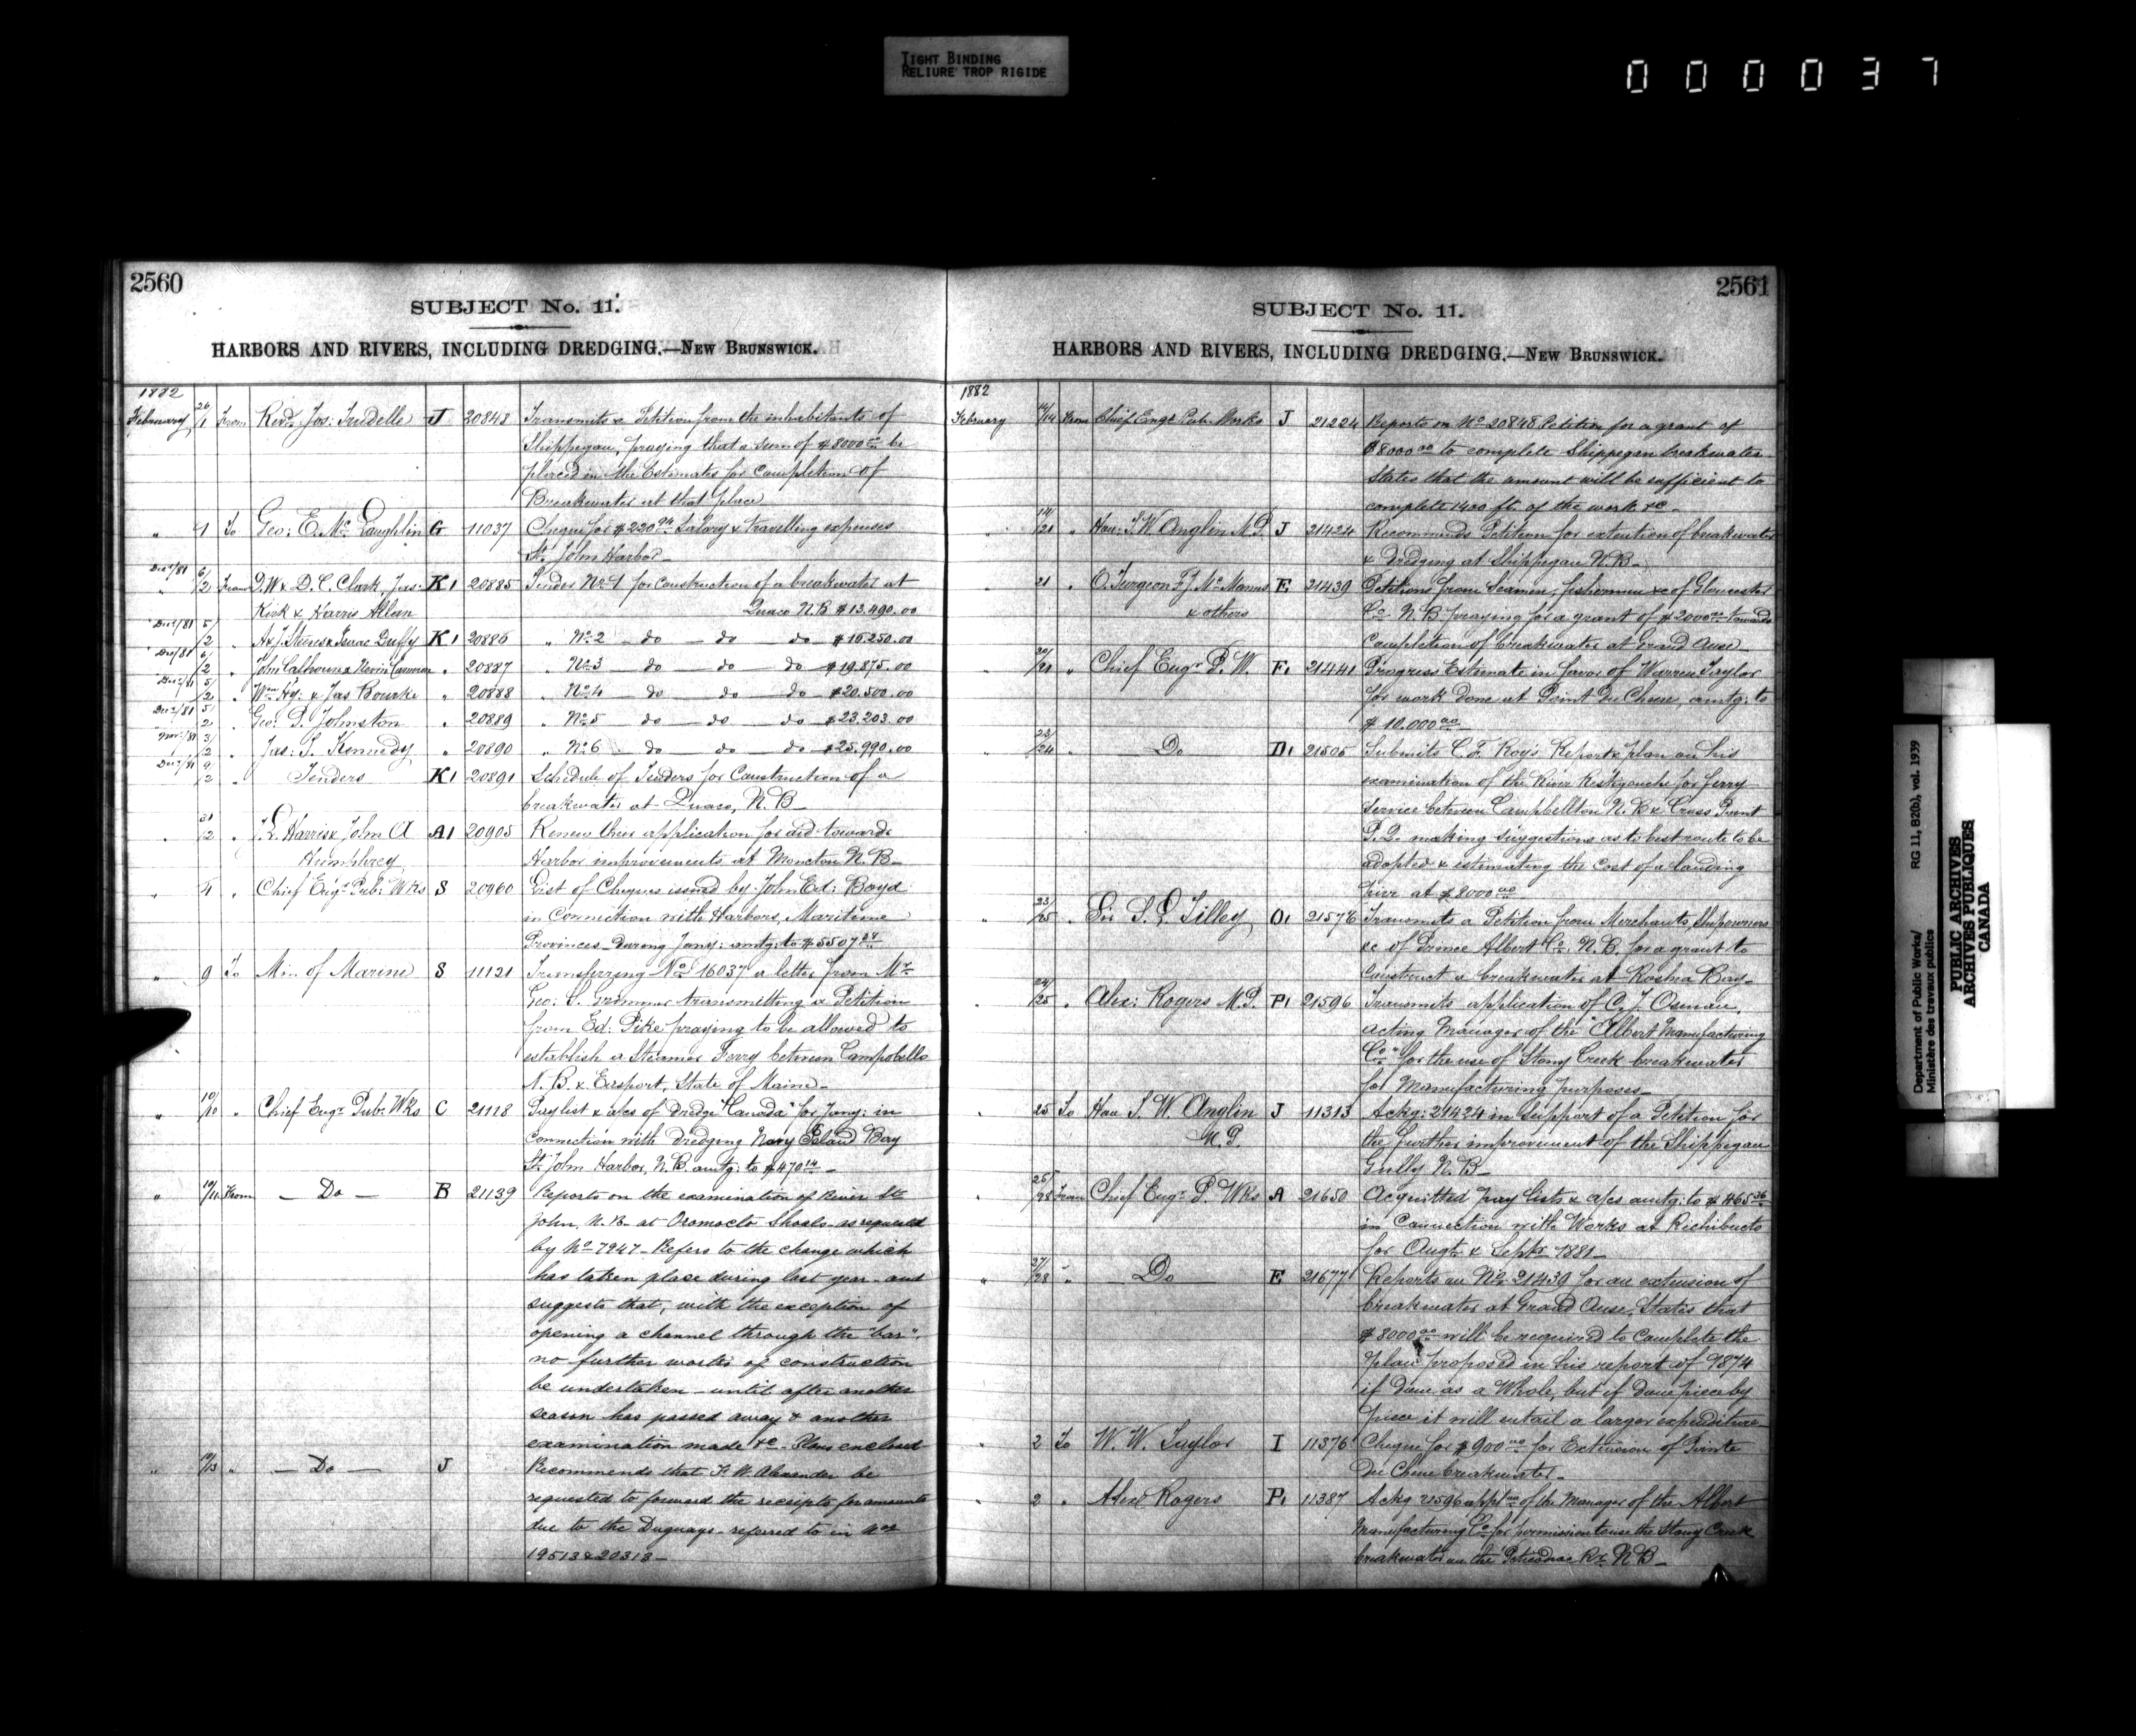 TIGHT BINDING
RELIURE TROP RIGIDE
000037
2560
SUBJECT No. 11.
HARBORS AND RIVERS, INCLUDING DREDGING.—NEW BRUNSWICK.
1882
February 26/1 From Revd. Jos: Trudelle J 20848 Transmits a Petition from the inhabitants of
Shippegan, praying that a sum of $8000.00 be
placed in the Estimates for completion of
Breakwater at that place
" 1 To Geo: E. Mc. Laughlin G 11037 Cheque for $220.94 Salary & travelling expenses
St. John Harbor
Dec/81 6/2 From D. W & D. C. Clark, Jas: K1 20885 Tender No 1 for construction of a breakwater at
Kirk & Harris Allan Quaco N.B $13.490.00
Dec/81 5/2 " Isaac Duffy K1 20886 " No 2 — do — do do $16.250.00
Dec/81 6/2 " John Calhoun & " 20887 " No 3 — do — do — do $19.875.00
Dec/81 5/2 " Wm Hy: & Jas Bourke " 20888 " No 4 — do — do — do $20.500.00
Dec/81 5/2 " Geo. P. Johnston " 20889 " No 5 — do — do — do $23.203.00
Nov/81 3/2 " Jas: S. Kennedy " 20890 " No 6 do — do — do $25.990.00
Dec/81 9/2 " Tenders K1 20891 Schedule of Tenders for Construction of a
breakwater at Quaco, N.B—
" 31/2 " J. L. Harris & John A A1 20905 Renew their application for aid towards
Humphrey Harbor improvements at Moncton N.B—
" 4 " Chief Engr. Pub: Wks S 20960 List of Cheques issued by John Ed: Boyd
in Connection with Harbors, Maritime
Provinces—During Jany: amtg: to $5507.
" 9 To Min of Marine S 11121 Transferring No 16037 a letter from Mr
Geo: S. Grimmer transmitting a Petition
from Ed: Pike praying to be allowed to
establish a Steamer Ferry between Campobello
N.B. & Easport, State of Maine—
" 10/10 " Chief Engr. Pub: Wks C 21118 Paylist & a/cs of Dredge "Canada" for Jany: in
connection with dredging Navy Island Bay
St. John Harbor, N.B. amtg: to $470.14—
" 10/11 From — Do — B 21139 Reports on the examination of River St.
John, N.B. at Oromocto Shoals—as requested
by No 7947—Refers to the change which
has taken place during last year—and
suggests that, with the exception of
opening a channel through the "bar",
no further works of construction
be undertaken—until after another
season has passed away & another
examination made &c—Plans enclosed—
" 10/13 " — Do — J Recommends that F. W. Alexander be
requested to forward the receipts for amounts
due to the Duguays—referred to in Nos
19513 & 20313—
2561
SUBJECT No. 11.
HARBORS AND RIVERS, INCLUDING DREDGING.—NEW BRUNSWICK.
1882
February 14/14 From Chief Engr Pub. Works J 21224 Reports on No 20848 Petition for a grant of
$8000.00 to complete Shippegan breakwater.
States that the amount will be sufficient to
complete 1400 ft. of the work &c—
" 14/21 " Hon: T. W. Anglin M.P. J 21424 Recommends Petition for extention of breakwater
& Dredging at Shippegan N.B—
" 21 " O. Turgeon F. J. McManus E 21439 Petitions from Seamen, fishermen &c of Gloucester
& others Co. N.B praying for a grant of $2000.00 towards
completion of breakwater at Grand Anse—
20/21 " Chief Engr. P. W. F1 21441 Progress Estimate in favor of Warren Taylor
for work done at Point Du Chene, amtg: to
$10.000.00
" 23/24 " Do D1 21505 Submits C. F. Roy's Report & plan on his
examination of the River Restigouche for ferry
service between Campbellton N.B & Cross Point
P.Q. making suggestions as to best route to be
adopted & estimating the cost of a landing
pier at $8000.00
" 23/25 " Sir S. L. Tilley O1 21576 Transmits a Petition from Merchants, Shipowners
&c of Prince Albert Co. N.B. for a grant to
construct a breakwater at Roshea Bay—
" 24/25 " Alex: Rogers M.P. P1 21596 Transmits application of C. J. Osman,
acting Manager of the "Albert Manufacturing
Co." for the use of Stony Creek breakwater
for Manufacturing purposes—
" 25 To Hon T. W. Anglin J 11313 Ackg: 21424 in support of a Petition for
M.P. the further improvement of the Shippegan
Gully N.B—
" 25/28 From Chief Engr. P. Wks A 21650 Acquitted pay lists & a/cs amtg: to $465.36
in Connection with Works at Richibucto
for Augt. & Septr 1881—
" 27/28 " Do E 21677 Reports on No 21439 for an extension of
breakwater at Grand Anse, States that
$8000.00 will be required to complete the
plan proposed in his report of 1874
if done as a Whole, but if done piece by
piece it will entail a larger expenditure—
" 2 To W. W. Taylor I 11376 Cheque for $900.00 for Extension of Pointe
Du Chene breakwater—
" 2 " Alexr Rogers P1 11387 Ackg 21596 of the Manager of the Albert
Manufacturing Co for permission to use the Stony Creek
breakwater on the Peticodiac Rr. N.B—
Department of Public Works/ RG 11, B2(b), vol. 1939
Ministère des travaux publics
PUBLIC ARCHIVES
ARCHIVES PUBLIQUES
CANADA